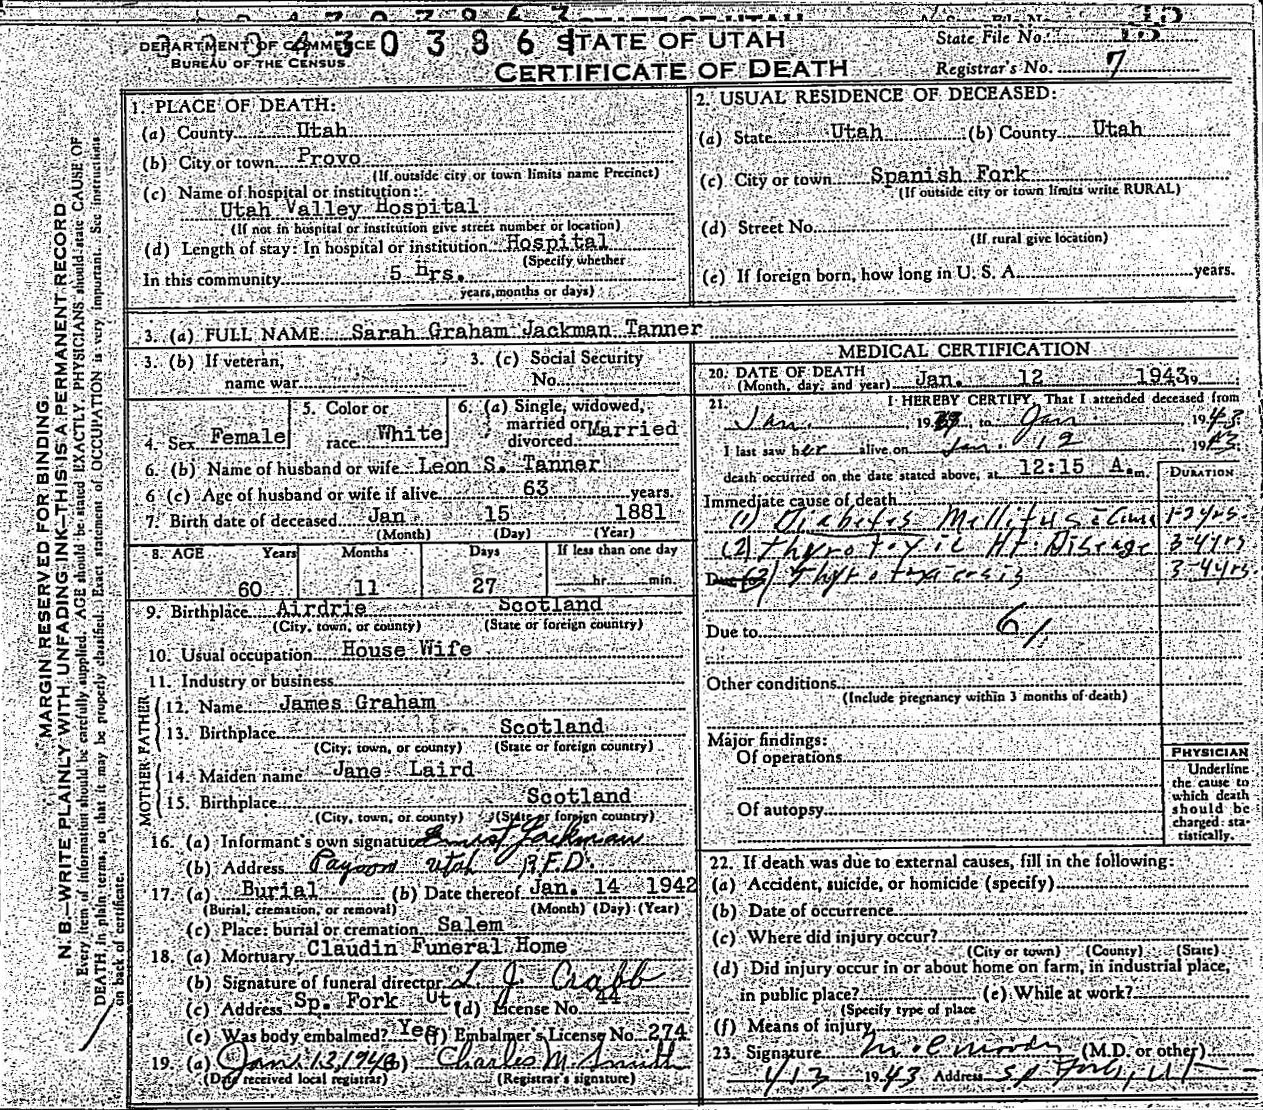 3 0 4 3 0 3 8 6 3 STATE OF UTAH State File No. 13
DEPARTMENT OF COMMERCE
BUREAU OF THE CENSUS
3 0 4 3 0 3 8 6 STATE OF UTAH
CERTIFICATE OF DEATH
State File No. 13
Registrar's No. 7
MARGIN RESERVED FOR BINDING
N. B.—WRITE PLAINLY WITH UNFADING INK—THIS IS A PERMANENT RECORD
Every item of information should be carefully supplied. AGE should be stated EXACTLY. PHYSICIANS should state CAUSE OF
DEATH in plain terms, so that it may be properly classified. Exact statement of OCCUPATION is very important. See instructions
on back of certificate.
1. PLACE OF DEATH:
(a) County Utah
(b) City or town Provo
(If outside city or town limits name Precinct)
(c) Name of hospital or institution:
Utah Valley Hospital
(If not in hospital or institution give street number or location)
(d) Length of stay: In hospital or institution Hospital
(Specify whether
In this community 5 Hrs.
years, months or days)
2. USUAL RESIDENCE OF DECEASED:
(a) State Utah (b) County Utah
(c) City or town Spanish Fork
(If outside city or town limits write RURAL)
(d) Street No.
(If rural give location)
(e) If foreign born, how long in U. S. A. years.
3. (a) FULL NAME Sarah Graham Jackman Tanner
3. (b) If veteran,
name war
3. (c) Social Security
No.
4. Sex Female
5. Color or
race White
6. (a) Single, widowed,
married or
divorced Married
6. (b) Name of husband or wife Leon S. Tanner
6 (c) Age of husband or wife if alive 63 years.
7. Birth date of deceased Jan 15 1881
(Month) (Day) (Year)
8. AGE Years Months Days If less than one day
60 11 27 hr. min.
9. Birthplace Airdrie Scotland
(City, town, or county) (State or foreign country)
10. Usual occupation House Wife
11. Industry or business
FATHER
12. Name James Graham
13. Birthplace Scotland
(City, town, or county) (State or foreign country)
MOTHER
14. Maiden name Jane Laird
15. Birthplace Scotland
(City, town, or county) (State or foreign country)
16. (a) Informant's own signature Ernest Jackman
(b) Address Payson Utah R.F.D.
17. (a) Burial (b) Date thereof Jan. 14 1942
(Burial, cremation, or removal) (Month) (Day) (Year)
(c) Place: burial or cremation Salem
18. (a) Mortuary Claudin Funeral Home
(b) Signature of funeral director L. J. Crabb
(c) Address Sp. Fork Ut. (d) License No. 44
(e) Was body embalmed? Yes (f) Embalmer's License No. 274
19. (a) Jan. 13, 1943 (b) Charles M. Smith
(Date received local registrar) (Registrar's signature)
MEDICAL CERTIFICATION
20. DATE OF DEATH
(Month, day, and year) Jan. 12 1943 19
21. I HEREBY CERTIFY, That I attended deceased from
Jan. 19 , to Jan. , 1943
I last saw her alive on Jan. 12 1943
death occurred on the date stated above, at 12:15 A. m.
DURATION
Immediate cause of death
(1) Diabetes Mellitus 1-2 yrs.
(2) Thyrotoxic Ht. Disease 3-4 yrs
Due to (3) Thyrotoxicosis 3-4 yrs.
Due to 61
Other conditions
(Include pregnancy within 3 months of death)
Major findings:
Of operations
Of autopsy
PHYSICIAN
Underline
the cause to
which death
should be
charged sta-
tistically.
22. If death was due to external causes, fill in the following:
(a) Accident, suicide, or homicide (specify)
(b) Date of occurrence
(c) Where did injury occur?
(City or town) (County) (State)
(d) Did injury occur in or about home on farm, in industrial place,
in public place? (e) While at work?
(Specify type of place
(f) Means of injury
23. Signature M. C. Moody (M.D. or other)
1/13 1943 Address Sp. Fork, Ut